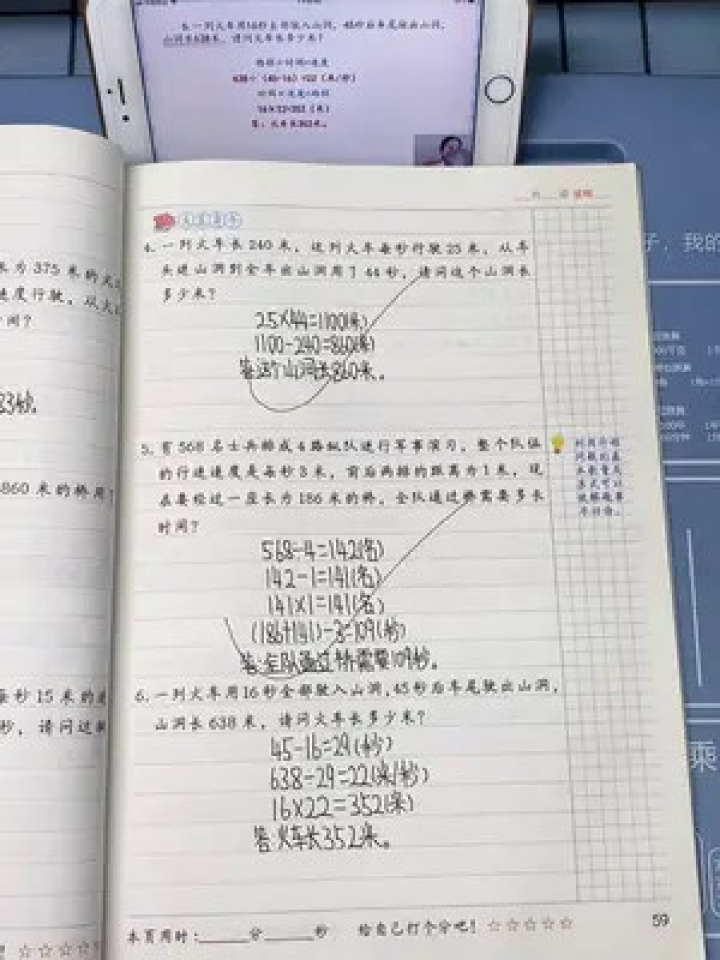 6.一列火车用16秒全部驶入山洞，45秒后车尾驶出山洞，
山洞长638米，请问火车长多少米？
路程÷时间=速度
638÷（45-16）=22（米/秒）
时间×速度=路程
16×22=352（米）
答：火车长352米。
长为375米的火
速度行驶，从火
间？
83秒。
860米的桥用
每秒15米的速
秒，请问这
4.一列火车长240米，这列火车每秒行驶25米，从车
头进山洞到全车出山洞用了44秒，请问这个山洞长
多少米？
25×44=1100(米)
1100-240=860(米)
答:这个山洞长860米。
5.有568名士兵排成4路纵队进行军事演习，整个队伍
的行进速度是每秒3米，前后两排的距离为1米，现
在要经过一座长为186米的桥，全队通过桥需要多长
时间？
568÷4=142(名)
142-1=141(名)
141×1=141(名)
(186+141)÷3=109(秒)
答:全队通过桥需要109秒。
6.一列火车用16秒全部驶入山洞，45秒后车尾驶出山洞，
山洞长638米，请问火车长多少米？
45-16=29(秒)
638÷29=22(米/秒)
16×22=352(米)
答:火车长352米。
本页用时：____分____秒 给自己打个分吧！☆☆☆☆☆
59
子，我的
乘